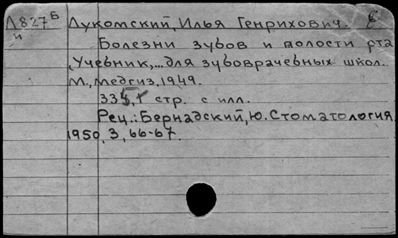 Л827Б Лукомский, Илья Генрихович.
и
Болезни зубов и полости рта
"Учебник"... для зубоврачебных школ.
М., Медгиз, 1949.
335, стр. с илл.
Рец.: Бернадский, Ю. Стоматология
1950, 3, 66-67.